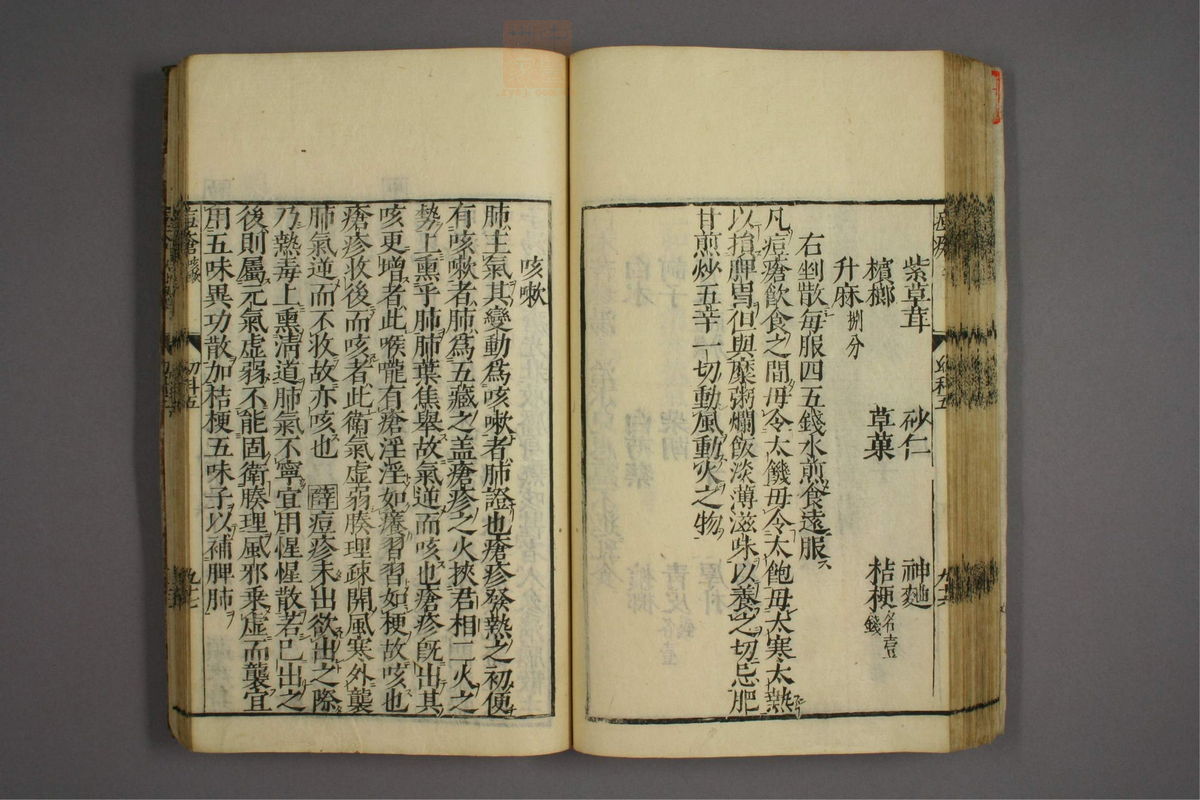 紫草茸 砂仁 神麯
檳榔 草菓 桔梗各壹錢
升麻捌分
右剉散每服四五錢水煎食遠服
凡痘瘡飲食之間毋令太饑毋令太飽毋太寒太熱
以損脾胃但與糜粥爛飯淡薄滋味以養之切忌肥
甘煎炒五辛一切動風動火之物
咳嗽
肺主氣其變動為咳嗽者肺證也瘡疹發熱之初便
有咳嗽者肺為五藏之蓋瘡疹之火挾君相二火之
勢上熏乎肺肺葉焦舉故氣逆而咳也瘡疹既出其
咳更增者此喉嚨有瘡淫淫如癢習習如梗故咳也
瘡疹收後而咳者此衛氣虛弱腠理疎開風寒外襲
肺氣逆而不收故亦咳也 薛痘疹未出欲出之際
乃熱毒上熏清道肺氣不寧宜用惺惺散若已出之
後則屬元氣虛弱不能固衛腠理風邪乘虛而襲宜
用五味異功散加桔梗五味子以補脾肺